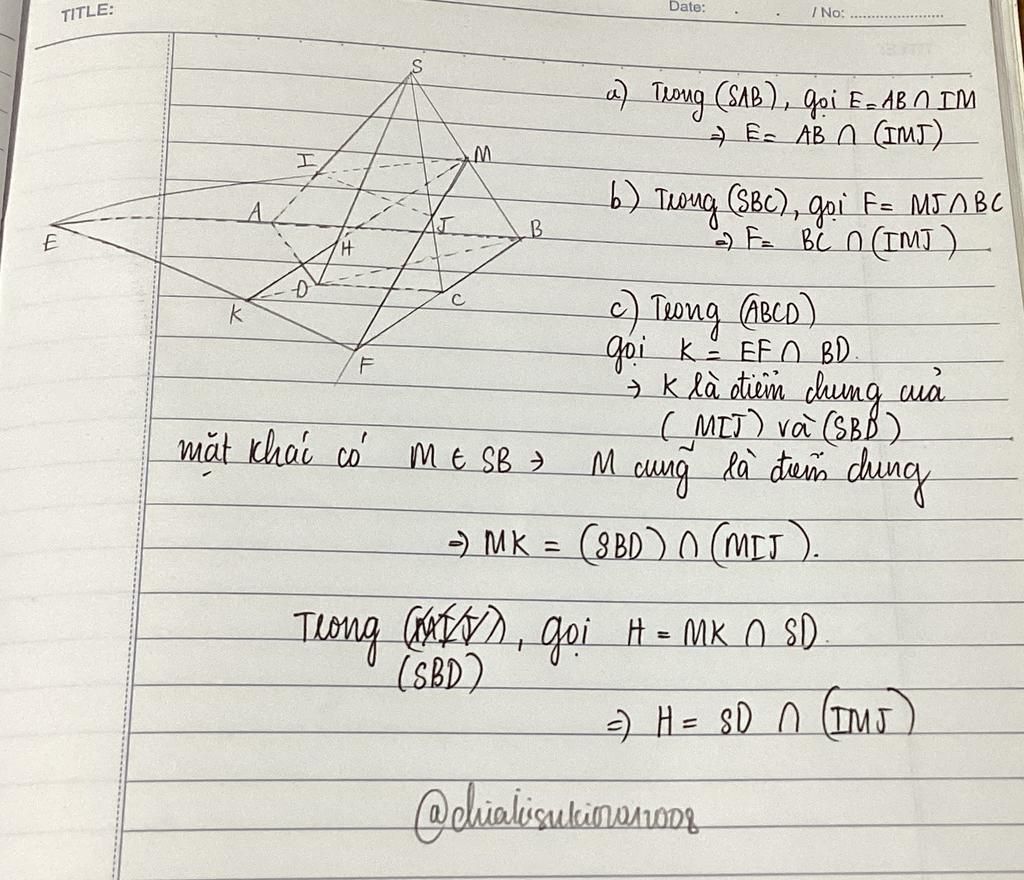 TITLE:
Date: . . / No: ........................
S
I
M
E
A
J
B
H
D
C
K
F
a) Trong (SAB), gọi E = AB ∩ IM
⇒ E = AB ∩ (IMJ)
b) Trong (SBC), gọi F = MJ ∩ BC
⇒ F = BC ∩ (IMJ)
c) Trong (ABCD)
gọi K = EF ∩ BD.
→ K là điểm chung của
(MIJ) và (SBD)
mặt khác có M ∈ SB → M cũng là điểm chung
⇒ MK = (SBD) ∩ (MIJ).
Trong , gọi H = MK ∩ SD.
(SBD)
⇒ H = SD ∩ (IMJ)